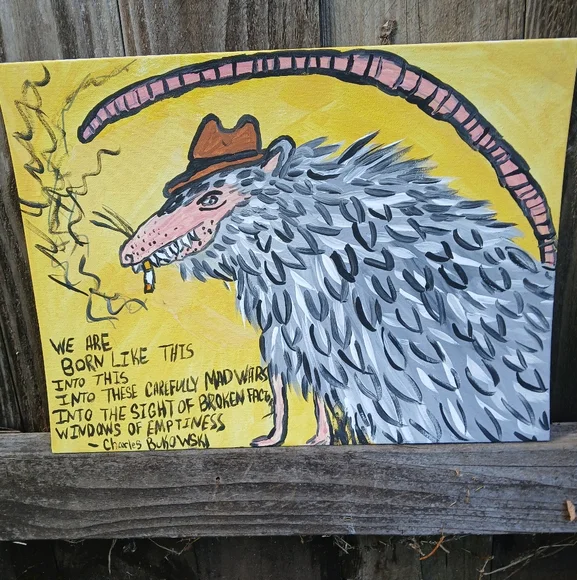 WE ARE
BORN LIKE THIS
INTO THIS
INTO THESE CAREFULLY MAD WARS
INTO THE SIGHT OF BROKEN FACTORY
WINDOWS OF EMPTINESS
- Charles BUKOWSKI